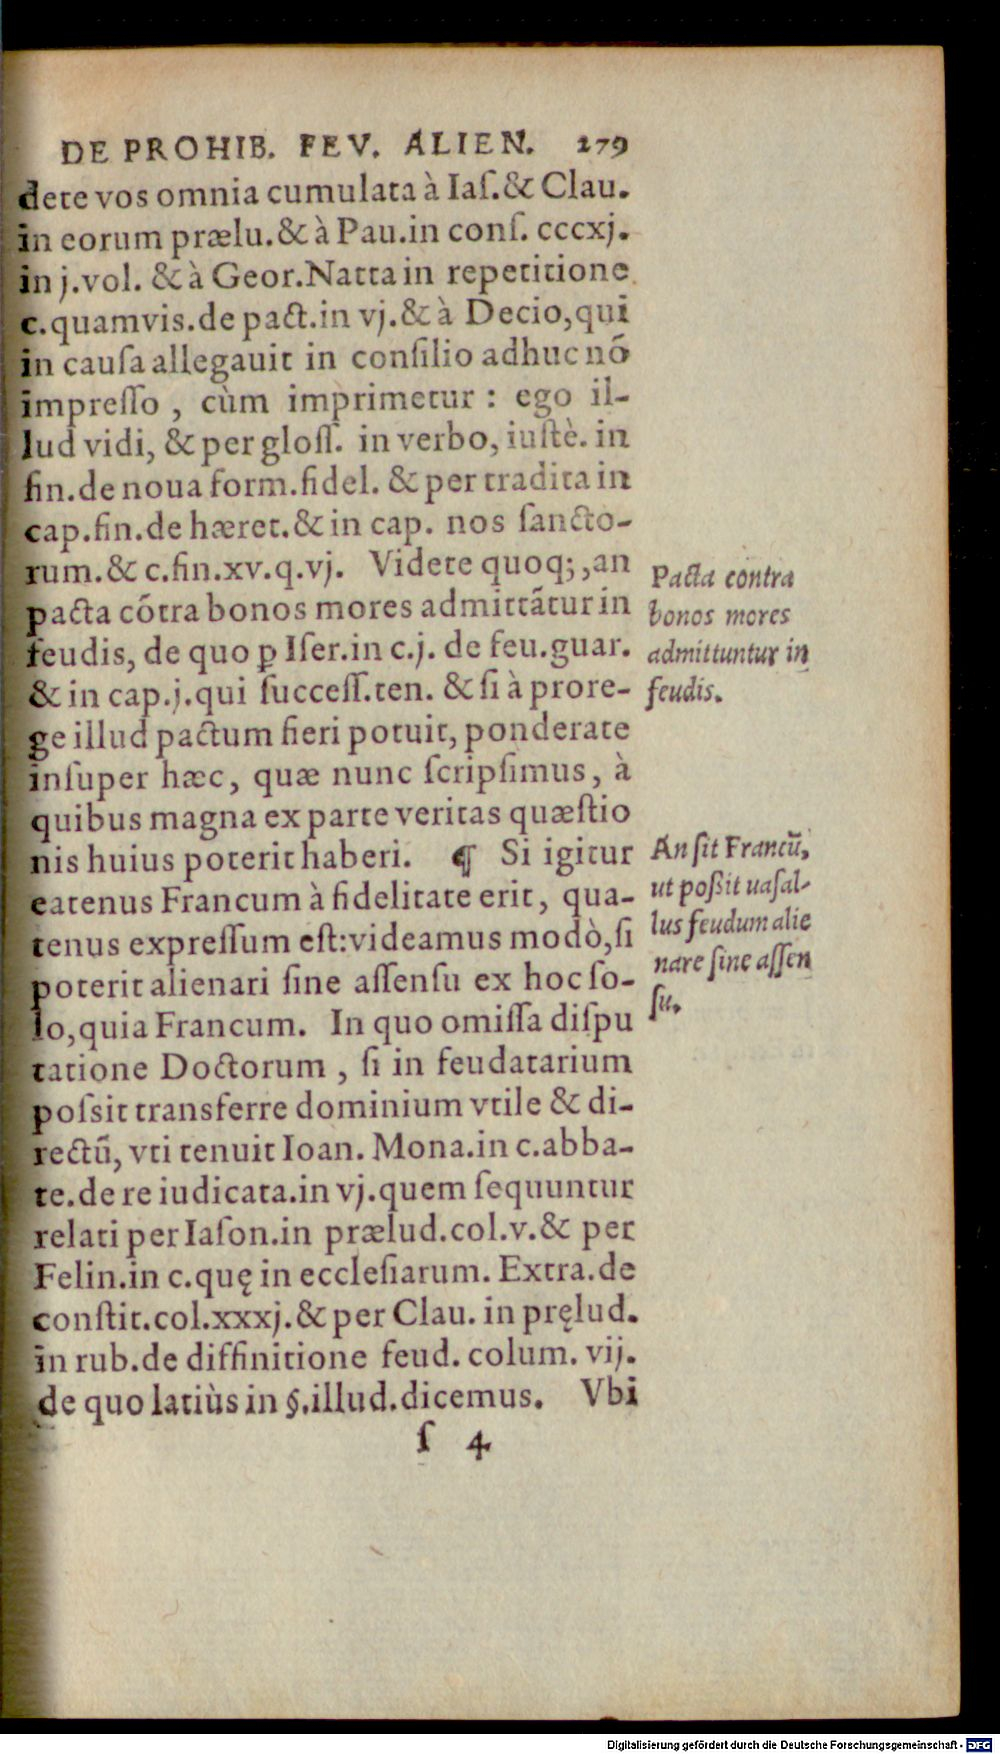 DE PROHIB. FEV. ALIEN. 279
dete vos omnia cumulata à Iaſ.& Clau.
in eorum prælu.& à Pau.in conſ. cccxj.
in j.vol. & à Geor.Natta in repetitione
c.quamvis.de pact.in vj.& à Decio,qui
in cauſa allegauit in conſilio adhuc nō
impreſſo , cùm imprimetur : ego il-
lud vidi, & per gloſſ. in verbo, iuſtè. in
fin.de noua form.fidel. & per tradita in
cap.fin.de hæret.& in cap. nos ſancto-
rum.& c.fin.xv.q.vj. Videte quoq; ,an
pacta cōtra bonos mores admittātur in
feudis, de quo ꝑ Iſer.in c.j. de feu.guar.
& in cap.j.qui ſucceſſ.ten. & ſi à prore-
ge illud pactum fieri potuit, ponderate
inſuper hæc, quæ nunc ſcripſimus, à
quibus magna ex parte veritas quæſtio
nis huius poterit haberi. ¶ Si igitur
eatenus Francum à fidelitate erit, qua-
tenus expreſſum eſt:videamus modò,ſi
poterit alienari ſine aſſenſu ex hoc ſo-
lo,quia Francum. In quo omiſſa diſpu
tatione Doctorum , ſi in feudatarium
poſsit transferre dominium vtile & di-
rectū, vti tenuit Ioan. Mona.in c.abba-
te.de re iudicata.in vj.quem ſequuntur
relati per Iaſon.in prælud.col.v.& per
Felin.in c.quę in eccleſiarum. Extra.de
conſtit.col.xxxj.& per Clau. in pręlud.
in rub.de diffinitione feud. colum. vij.
de quo latiùs in §.illud.dicemus. Vbi
ſ 4
Pacta contra
bonos mores
admittuntur in
feudis.
An ſit Francū,
ut poßit uaſal-
lus feudum alie
nare ſine aſſen
ſu.
Digitalisierung gefördert durch die Deutsche Forschungsgemeinschaft - DFG